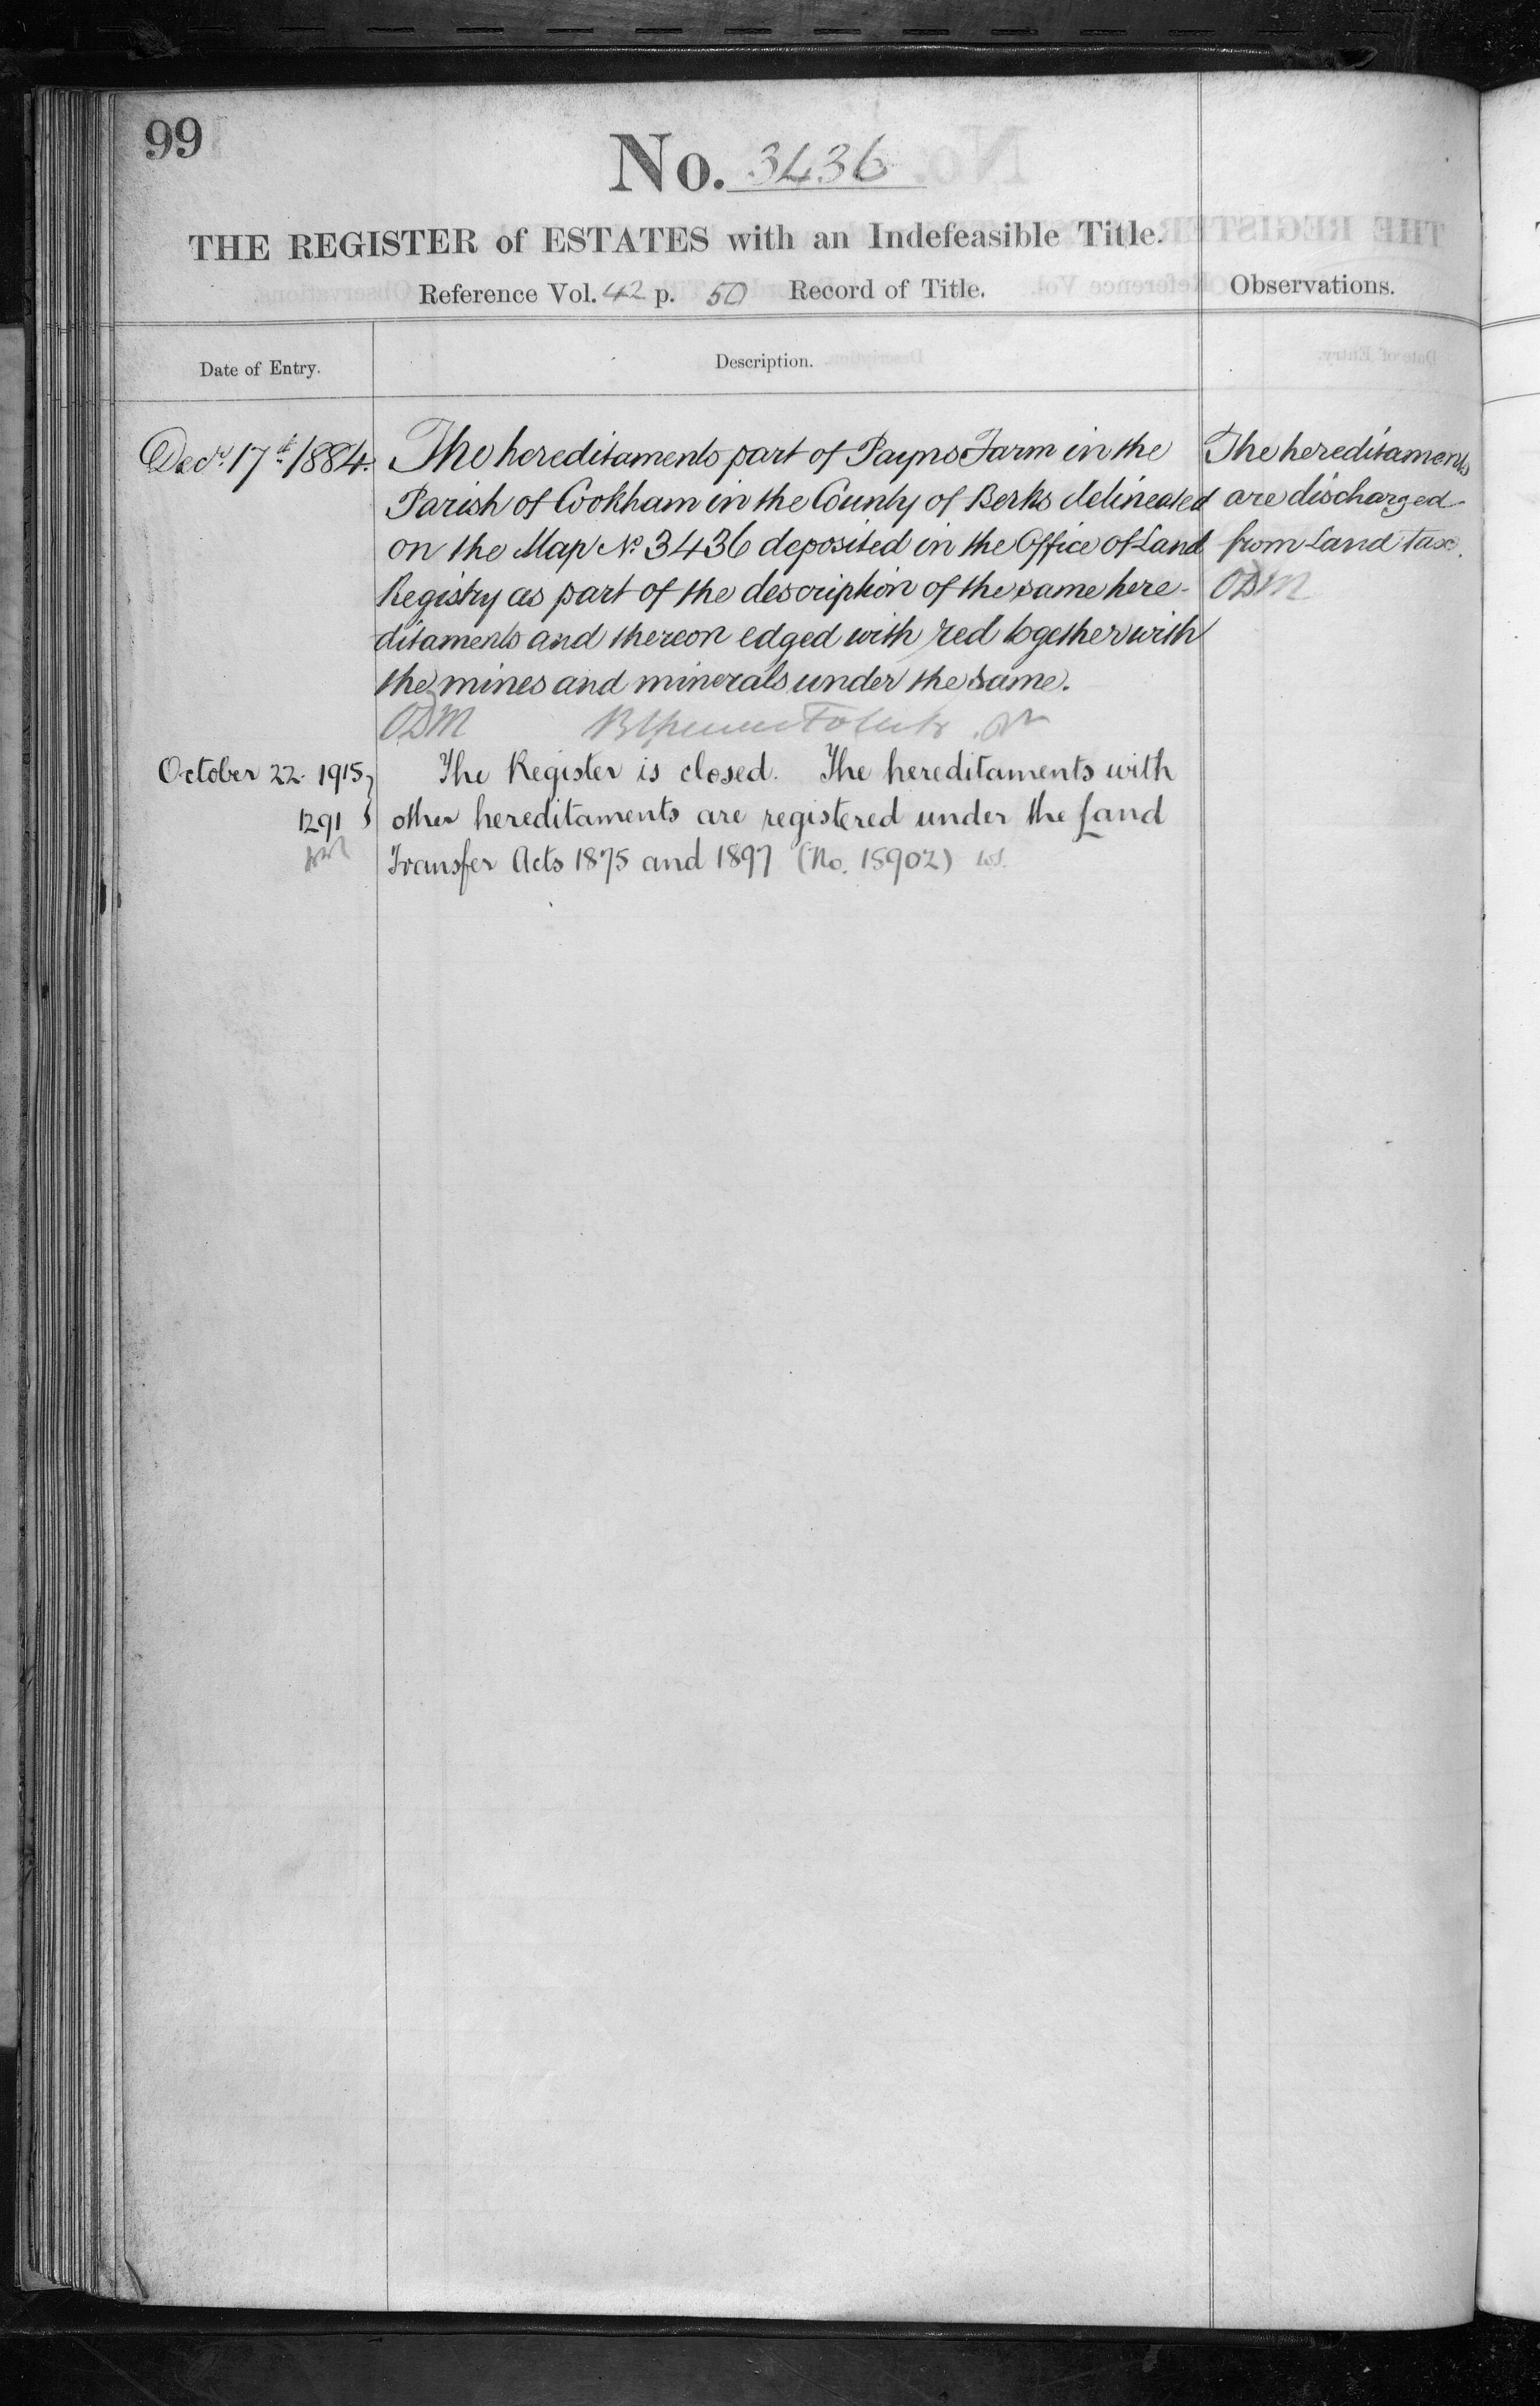 99
No. 3436
THE REGISTER of ESTATES with an Indefeasible Title.
Reference Vol. 42 p. 50 Record of Title.
Observations.
Date of Entry.
Description.
Decr. 17th 1884.
The hereditaments part of Payns Farm in the
Parish of Cookham in the County of Berks delineated
on the Map No. 3436 deposited in the Office of Land
Registry as part of the description of the same here-
ditaments and thereon edged with red together with
the mines and minerals under the same.
ODM
The hereditaments
are discharged
from Land Tax.
ODM
October 22. 1915
1291
The Register is closed. The hereditaments with
other hereditaments are registered under the Land
Transfer Acts 1875 and 1897 (No. 15902)